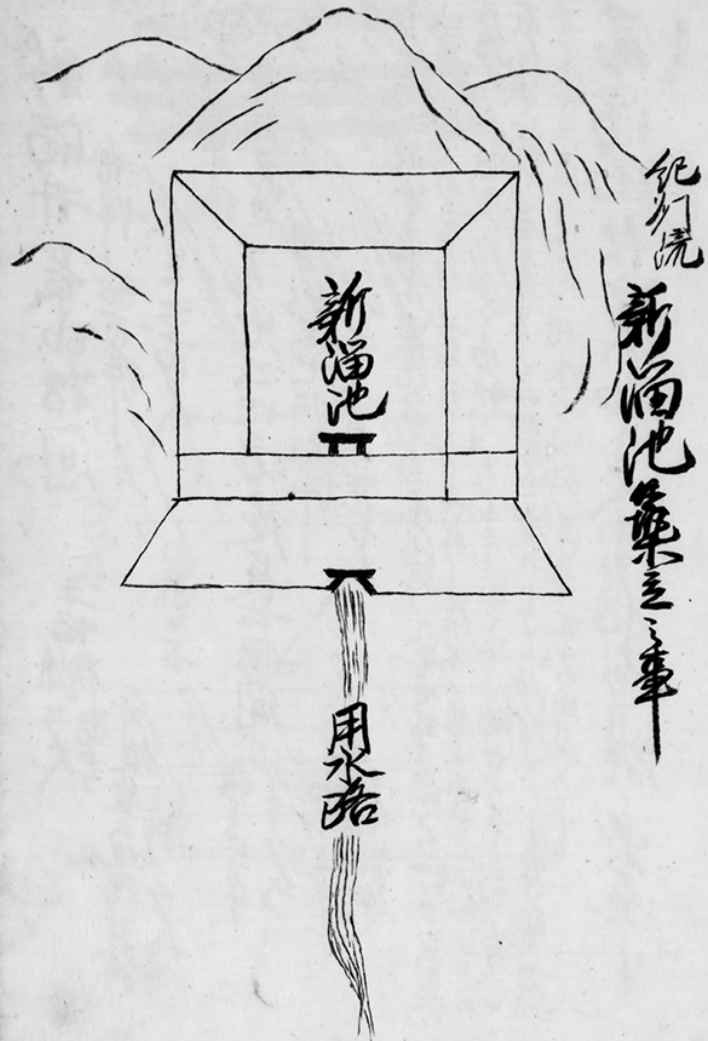 紀州流
新溜池築立之事
新溜池
用水路